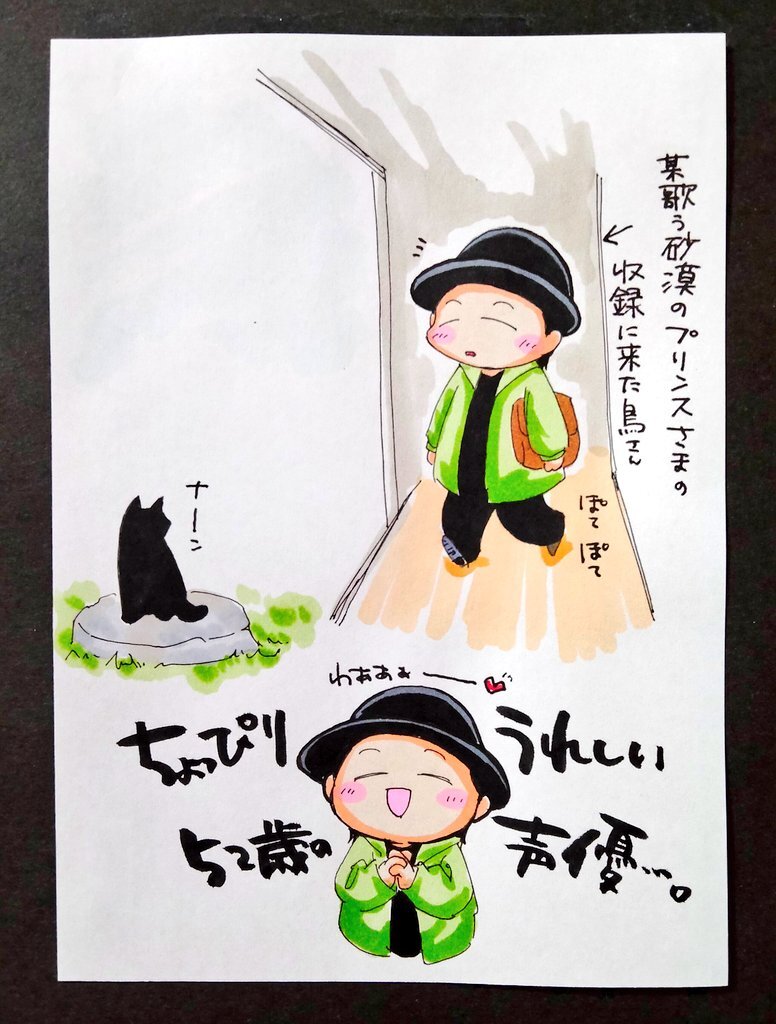 某歌う砂漠のプリンスさまの
収録に来た鳥さん
ぽて
ぽて
ナーン
わああぁー
ちょっぴり
うれしい
52歳の
声優…。